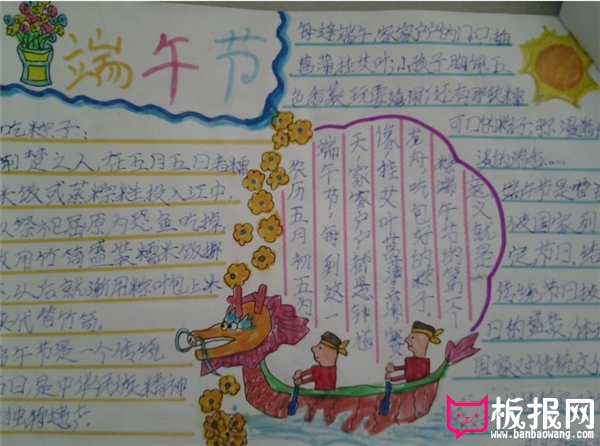 端午节
每逢端午,家家户户的门口插
菖蒲挂艾叶;小孩子胸佩五
色香袋,玩耍嬉闹;还有那软糯
可口的粽子,弥漫着
淡的清香……
吃粽子:
荆楚之人,在五月五日煮糯
米饭或蒸粽糕投入江中,
以祭祀屈原,为恐鱼吃掉,
故用竹筒盛装糯米饭掷
以后就渐用粽叶包上米
来代替竹筒。
端午节是一个传统
节日,是中华民族精神
独特遗产
农历五月初五为
端午节,每到这一
天,家家户户都悬钟馗
像,挂艾叶菖蒲,赛
龙舟,吃包好的粽子.
端午节的第一个
意义就是
端午节是
国家列
定节日,
传统节日
日的盛装,体
国家对传统文化
板报网
www.banbaowang.com